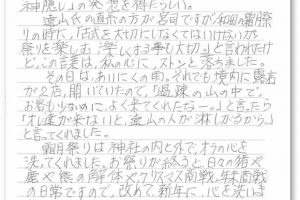 神脈しの発想を得たらしい。
遠山氏の直系の方が宮司ですが和田の霜月祭
りの時に、「古式を大切にしなくてはいけないが
祭りを楽しむ事も大切」と言われたけ
ど、この言葉は、私の心に、ストンと落ちました。
その日は、あいにくの雨、それでも境内に露店
が2店、開いていたので、「過疎の山の中で、
お客も少ないのに、よく来てくれたなー。」と言ったら
「オレ達が来ないと、遠山の人が淋しがるから」と
言ってくれました。
霜月祭りは神社の内と外で、オラの心を
洗ってくれました。お祭りが終ると、日々の猪や
鹿や熊の解体やクリスマス商戦、年末商戦
の日常ですので、改めて、新年に、心を洗いま